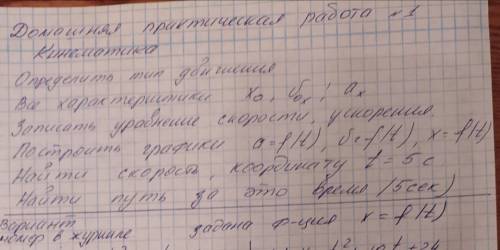 Домашняя практическая работа №1
Кинематика
Определить тип движения
Все характеристики x₀, v₀ₓ; aₓ
Записать уравнение скорости, ускорения.
Построить графики a=f(t), v=f(t), x=f(t)
Найти скорость, координату t=5с
Найти путь за это время (5сек)
Вариант
номер в журнале задана ф-ция x=f(t)